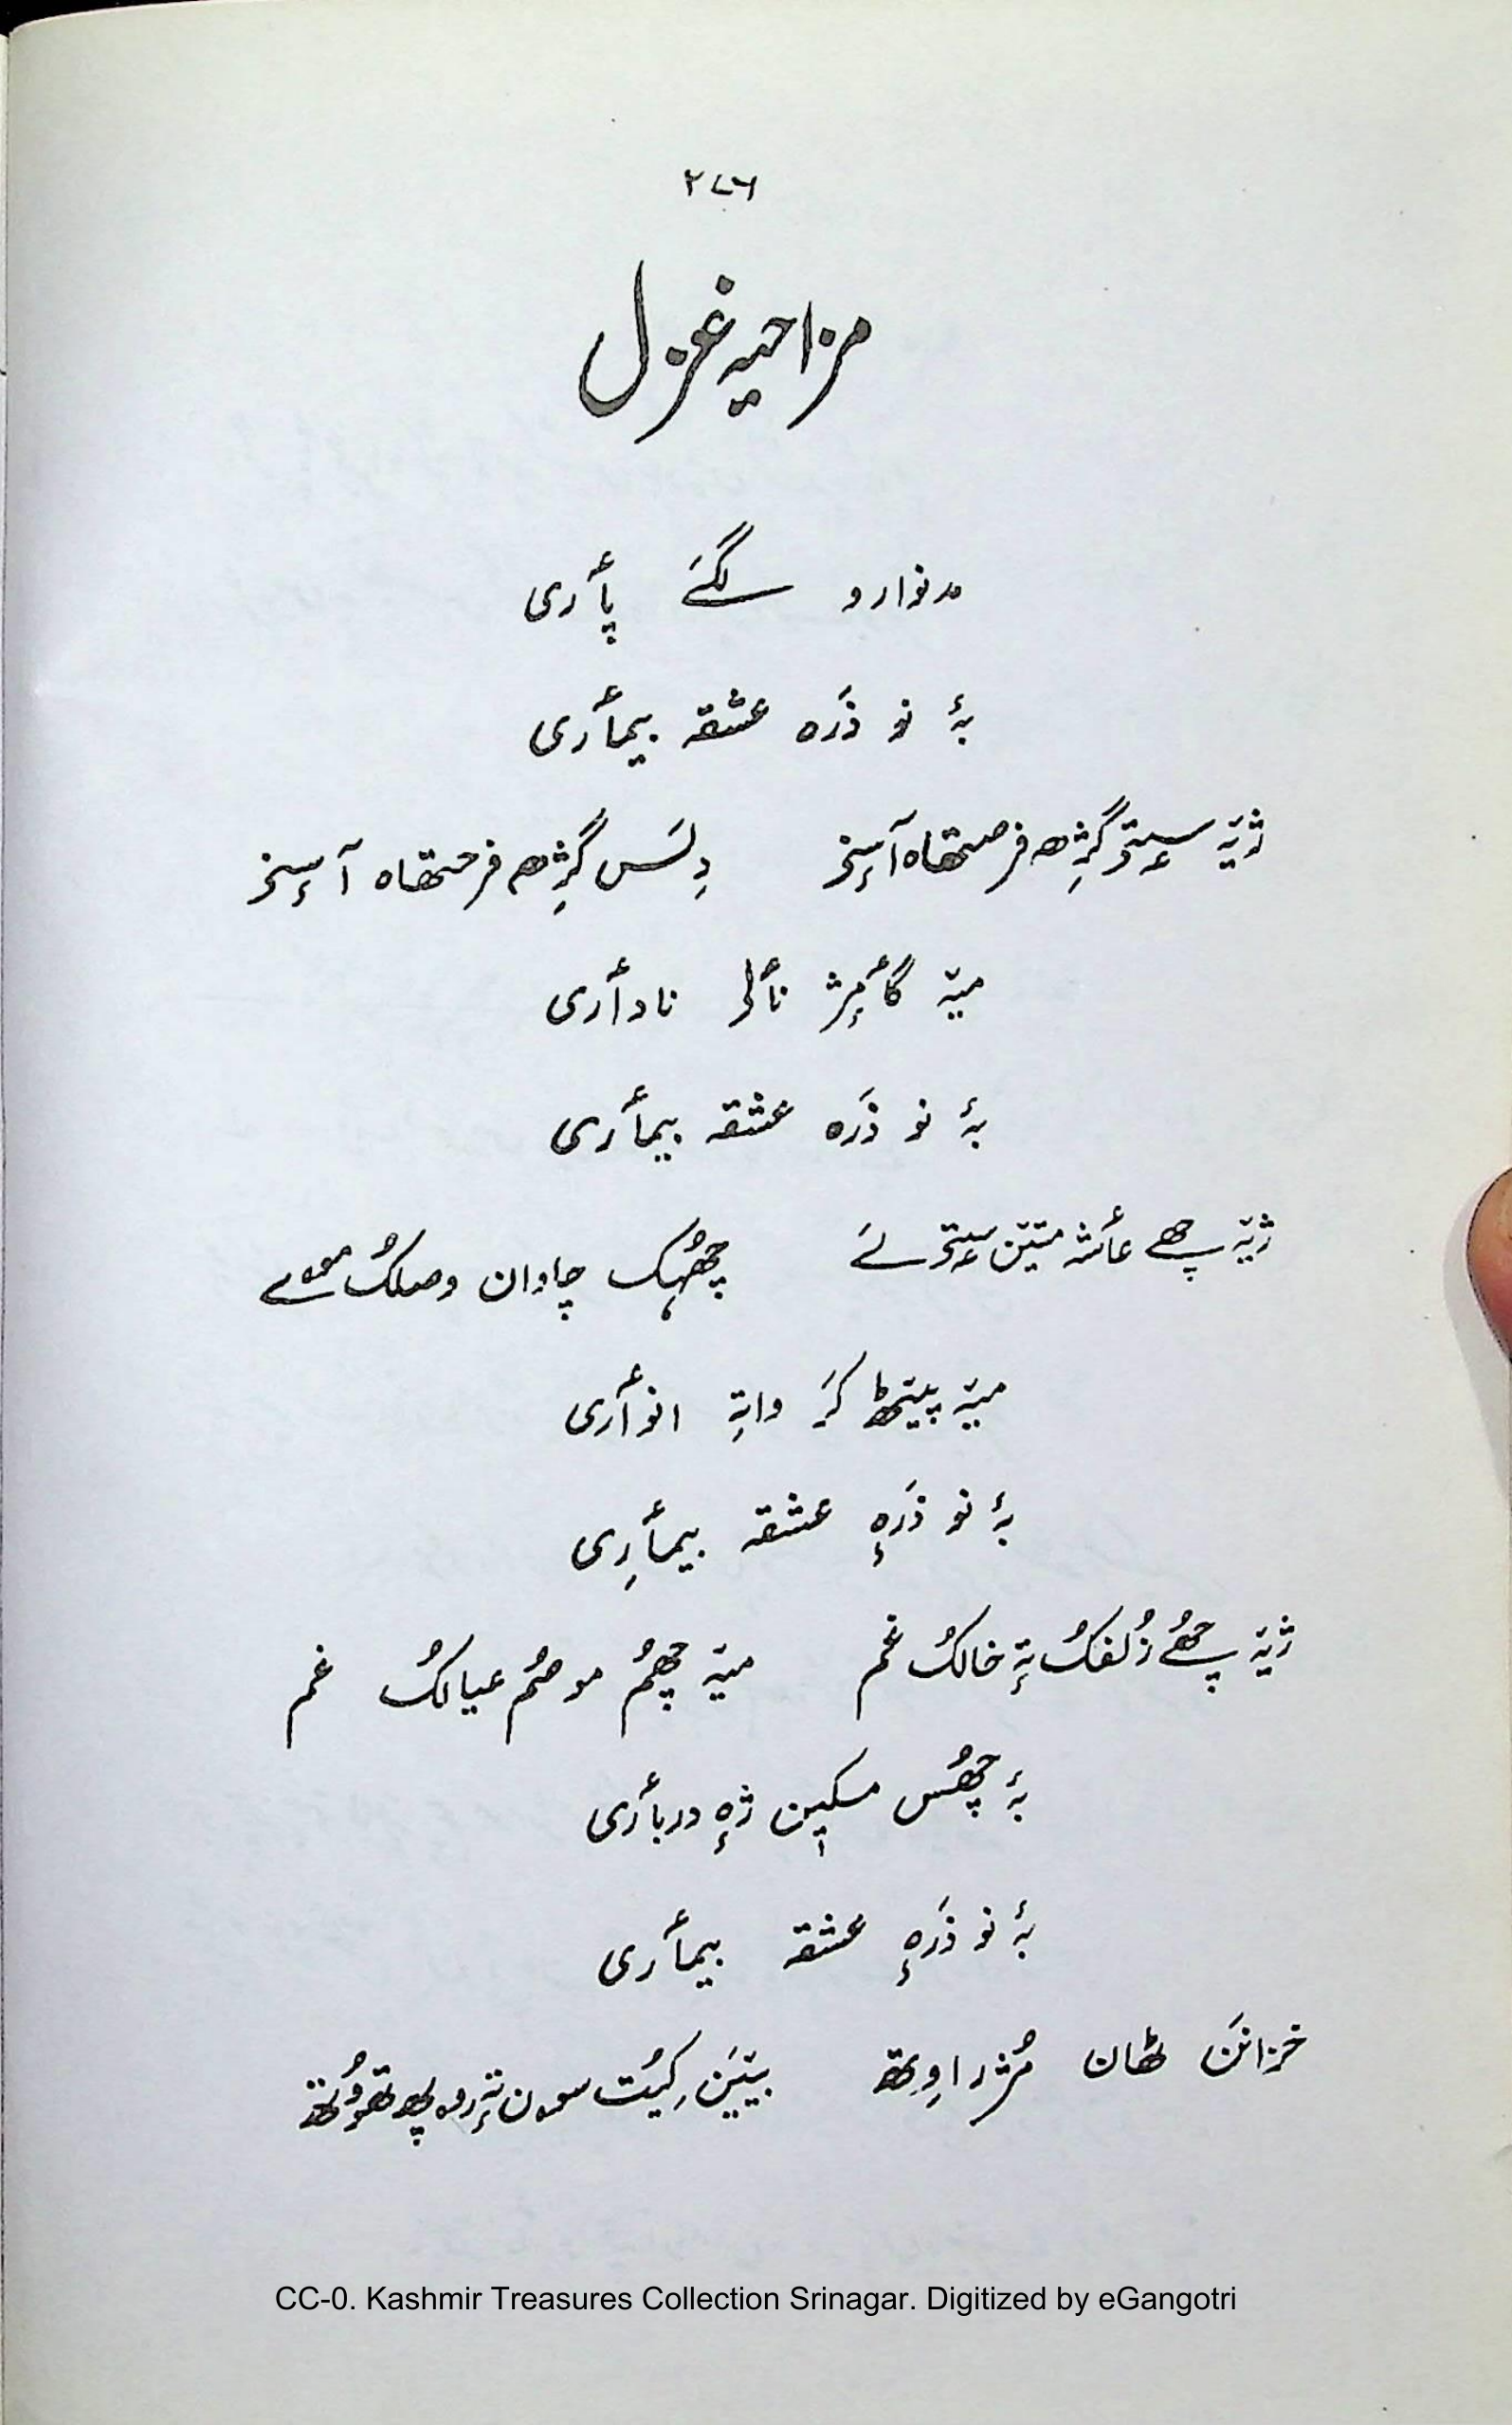 ۲۷۶
مزاحیہ غزل
مدنوارو لگے پأری
بہٕ نو ذَرہ عشقہ بیمأری
ژیہٚ سیتۍ گژھِ فرصتھاہ آسٕنۍ دِلَس گژھِ فرحتھاہ آسٕنۍ
میہٚ گأمٕژ نألۍ نادأری
بہٕ نو ذَرہ عشقہ بیمأری
ژیہٚ چھے عأشہ متیٚن سیتۍ لَے چھُہک چاوان وصلُک مۄے
میہٚ پیٚٹھ کَر واتہِ انوأری
بہٕ نو ذَرہٕ عشقہ بیمأرِی
ژیہٚ چھُے زُلفُک تہٕ خالُک غم میہٚ چھُم موصُم عیالُک غم
بہٕ چھُس مسکیٖن ژہٕ دربأری
بہٕ نو ذَرہٕ عشقہ بیمأری
خزانَن ٹھان مُژراوِتھ بیٚیَن کیُت سۄن تہٕ رۄپھ تھوُتھ
CC-0. Kashmir Treasures Collection Srinagar. Digitized by eGangotri